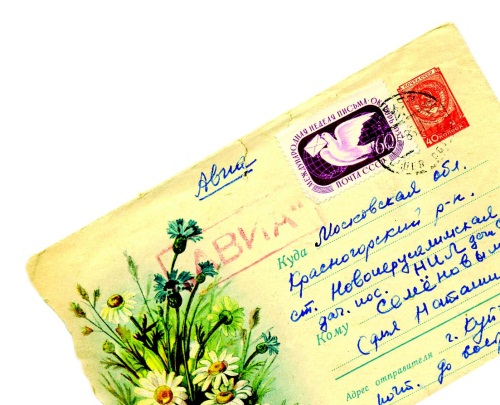 Авиа
"АВИА"
МЕЖДУНАРОДНАЯ НЕДЕЛЯ ПИСЬМА-ОКТЯБРЬ 1957
60
ПОЧТА СССР
40 КОПЕЕК
Куда Московская обл.
Красногорский р-н.
ст. Новоиерусалимская
дач. пос. НИЛ дача
Кому Семёновым
(для Наташи
Адрес отправителя г. Куй
почт. до вост